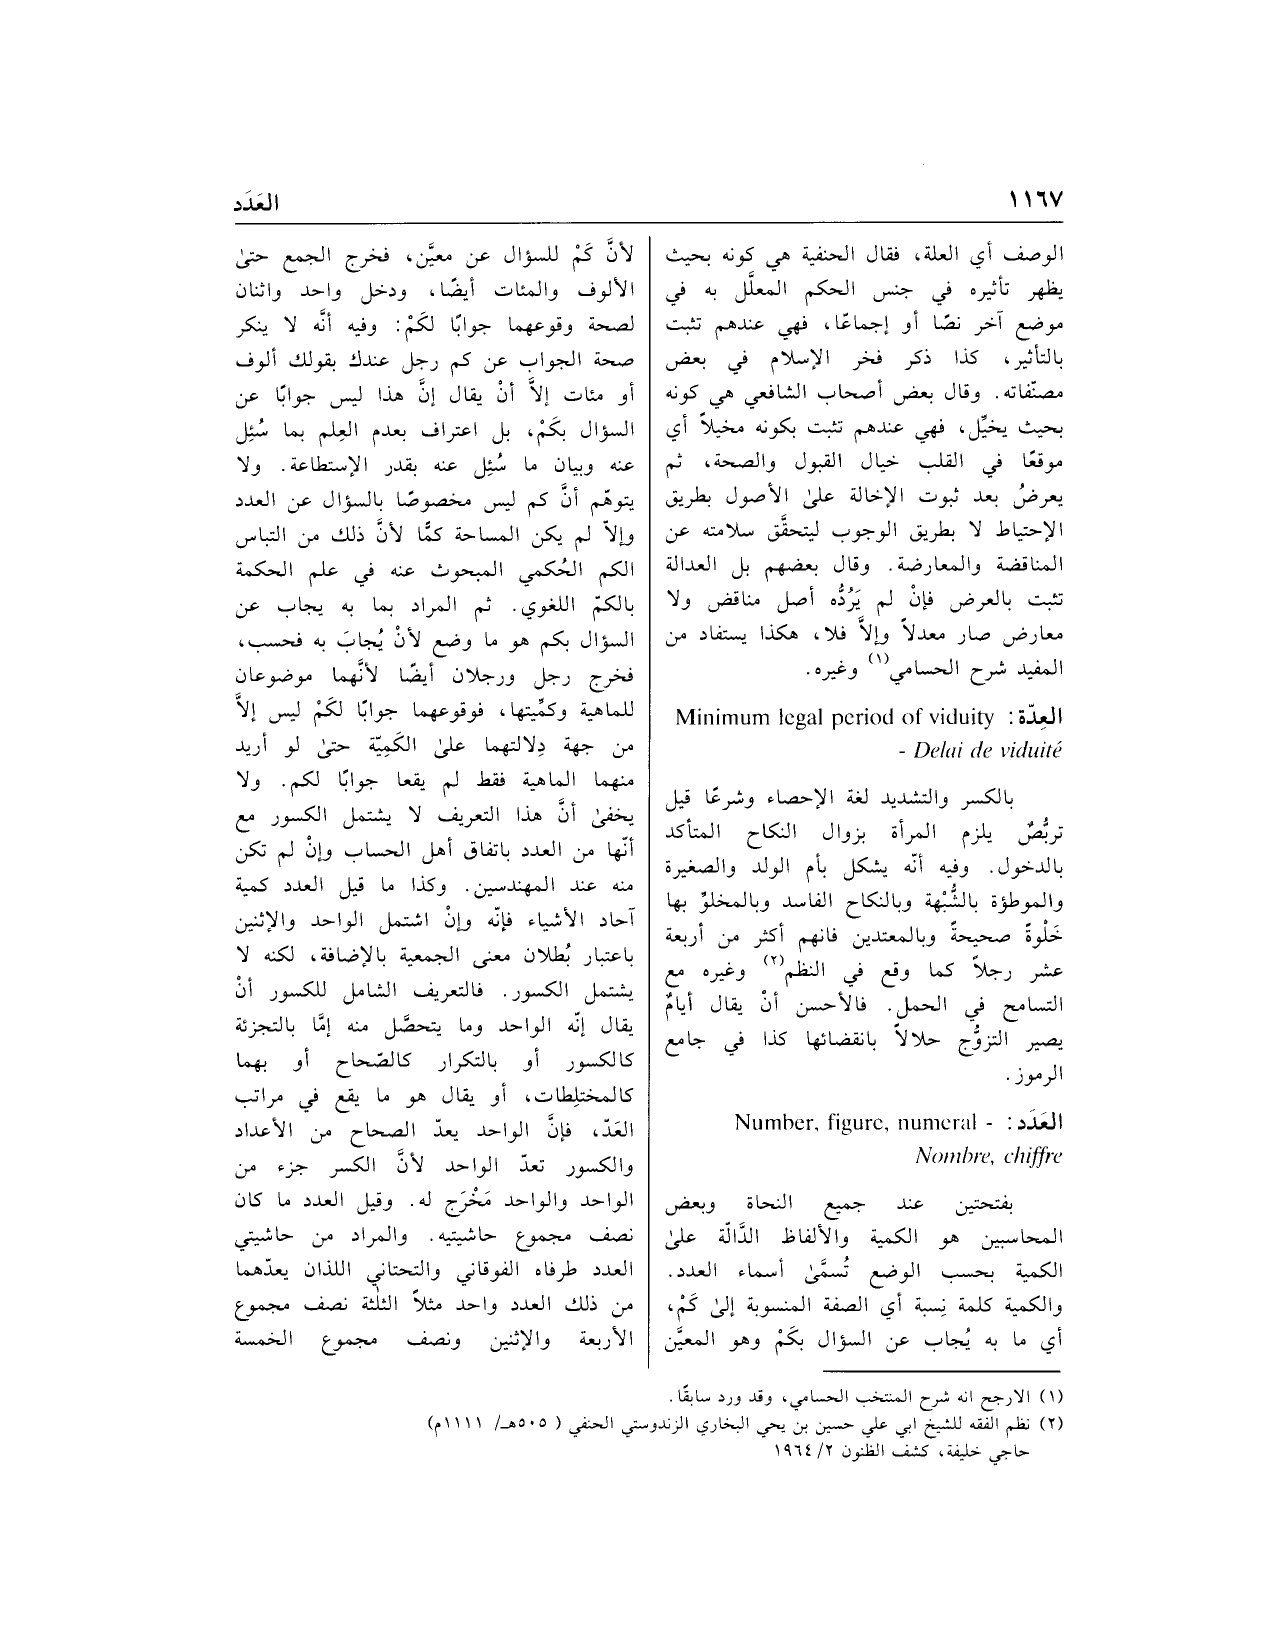 ١١٦٧
العَدَد
الوصف أي العلة، فقال الحنفية هي كونه بحيث
يظهر تأثيره في جنس الحكم المعلَّل به في
موضع آخر نصًا أو إجماعًا، فهي عندهم تثبت
بالتأثير، كذا ذكر فخر الإسلام في بعض
مصنّفاته. وقال بعض أصحاب الشافعي هي كونه
بحيث يخيِّل، فهي عندهم تثبت بكونه مخيلاً أي
موقعًا في القلب خيال القبول والصحة، ثم
يعرضُ بعد ثبوت الإخالة علىٰ الأصول بطريق
الإحتياط لا بطريق الوجوب ليتحقَّق سلامته عن
المناقضة والمعارضة. وقال بعضهم بل العدالة
تثبت بالعرض فإنْ لم يَرُدُّه أصل مناقض ولا
معارض صار معدلاً وإلاَّ فلا، هكذا يستفاد من
المفيد شرح الحسامي(١) وغيره.
العِدّة: Minimum legal period of viduity
- Delai de viduité
بالكسر والتشديد لغة الإحصاء وشرعًا قيل
تربُّصٌ يلزم المرأة بزوال النكاح المتأكد
بالدخول. وفيه أنّه يشكل بأم الولد والصغيرة
والموطؤة بالشُّبْهة وبالنكاح الفاسد وبالمخلوِّ بها
خَلْوةً صحيحةً وبالمعتدين فانهم أكثر من أربعة
عشر رجلاً كما وقع في النظم(٢) وغيره مع
التسامح في الحمل. فالأحسن أنْ يقال أيامٌ
يصير التزوُّج حلالاً بانقضائها كذا في جامع
الرموز.
العَدَد: Number, figure, numeral -
Nombre, chiffre
بفتحتين عند جميع النحاة وبعض
المحاسبين هو الكمية والألفاظ الدَّالّة علىٰ
الكمية بحسب الوضع تُسمَّىٰ أسماء العدد.
والكمية كلمة نِسبة أي الصفة المنسوبة إلىٰ كَمْ،
أي ما به يُجاب عن السؤال بكَمْ وهو المعيَّن
لأنَّ كَمْ للسؤال عن معيَّن، فخرج الجمع حتىٰ
الألوف والمئات أيضًا، ودخل واحد واثنان
لصحة وقوعهما جوابًا لكَمْ: وفيه أنَّه لا ينكر
صحة الجواب عن كم رجل عندك بقولك ألوف
أو مئات إلاَّ أنْ يقال إنَّ هذا ليس جوابًا عن
السؤال بكَمْ، بل اعتراف بعدم العِلم بما سُئِل
عنه وبيان ما سُئِل عنه بقدر الإستطاعة. ولا
يتوهّم أنَّ كم ليس مخصوصًا بالسؤال عن العدد
وإلاّ لم يكن المساحة كمًّا لأنَّ ذلك من التباس
الكم الحُكمي المبحوث عنه في علم الحكمة
بالكمّ اللغوي. ثم المراد بما به يجاب عن
السؤال بكم هو ما وضع لأنْ يُجابَ به فحسب،
فخرج رجل ورجلان أيضًا لأنَّهما موضوعان
للماهية وكمِّيتها، فوقوعهما جوابًا لكَمْ ليس إلاَّ
من جهة دِلالتهما علىٰ الكَمِيّة حتىٰ لو أريد
منهما الماهية فقط لم يقعا جوابًا لكم. ولا
يخفىٰ أنَّ هذا التعريف لا يشتمل الكسور مع
أنّها من العدد باتفاق أهل الحساب وإنْ لم تكن
منه عند المهندسين. وكذا ما قيل العدد كمية
آحاد الأشياء فإنّه وإنْ اشتمل الواحد والإثنين
باعتبار بُطلان معنى الجمعية بالإضافة، لكنه لا
يشتمل الكسور. فالتعريف الشامل للكسور أنْ
يقال إنّه الواحد وما يتحصَّل منه إمَّا بالتجزئة
كالكسور أو بالتكرار كالصّحاح أو بهما
كالمختلِطات، أو يقال هو ما يقع في مراتب
العَدّ، فإنَّ الواحد يعدّ الصحاح من الأعداد
والكسور تعدّ الواحد لأنَّ الكسر جزء من
الواحد والواحد مَخْرَج له. وقيل العدد ما كان
نصف مجموع حاشيتيه. والمراد من حاشيتي
العدد طرفاه الفوقاني والتحتاني اللذان يعدّهما
من ذلك العدد واحد مثلاً الثلٰثة نصف مجموع
الأربعة والإثنين ونصف مجموع الخمسة
(١) الارجح انه شرح المنتخب الحسامي، وقد ورد سابقًا.
(٢) نظم الفقه للشيخ ابي علي حسين بن يحي البخاري الزندوستي الحنفي ( ٥٠٥هـ/ ١١١١م)
حاجي خليفة، كشف الظنون ٢/ ١٩٦٤